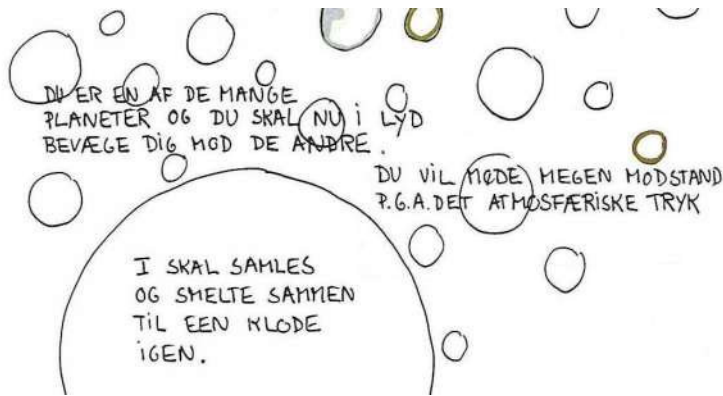 DU ER EN AF DE MANGE
PLANETER OG DU SKAL NU i LYD
BEVÆGE DiG MOD DE ANDRE.
DU ViL MØDE MEGEN MODSTAND
P.G.A. DET ATMOSFÆRiSKE TRYK
I SKAL SAMLES
OG SMELTE SAMMEN
TiL EEN KLODE
iGEN.